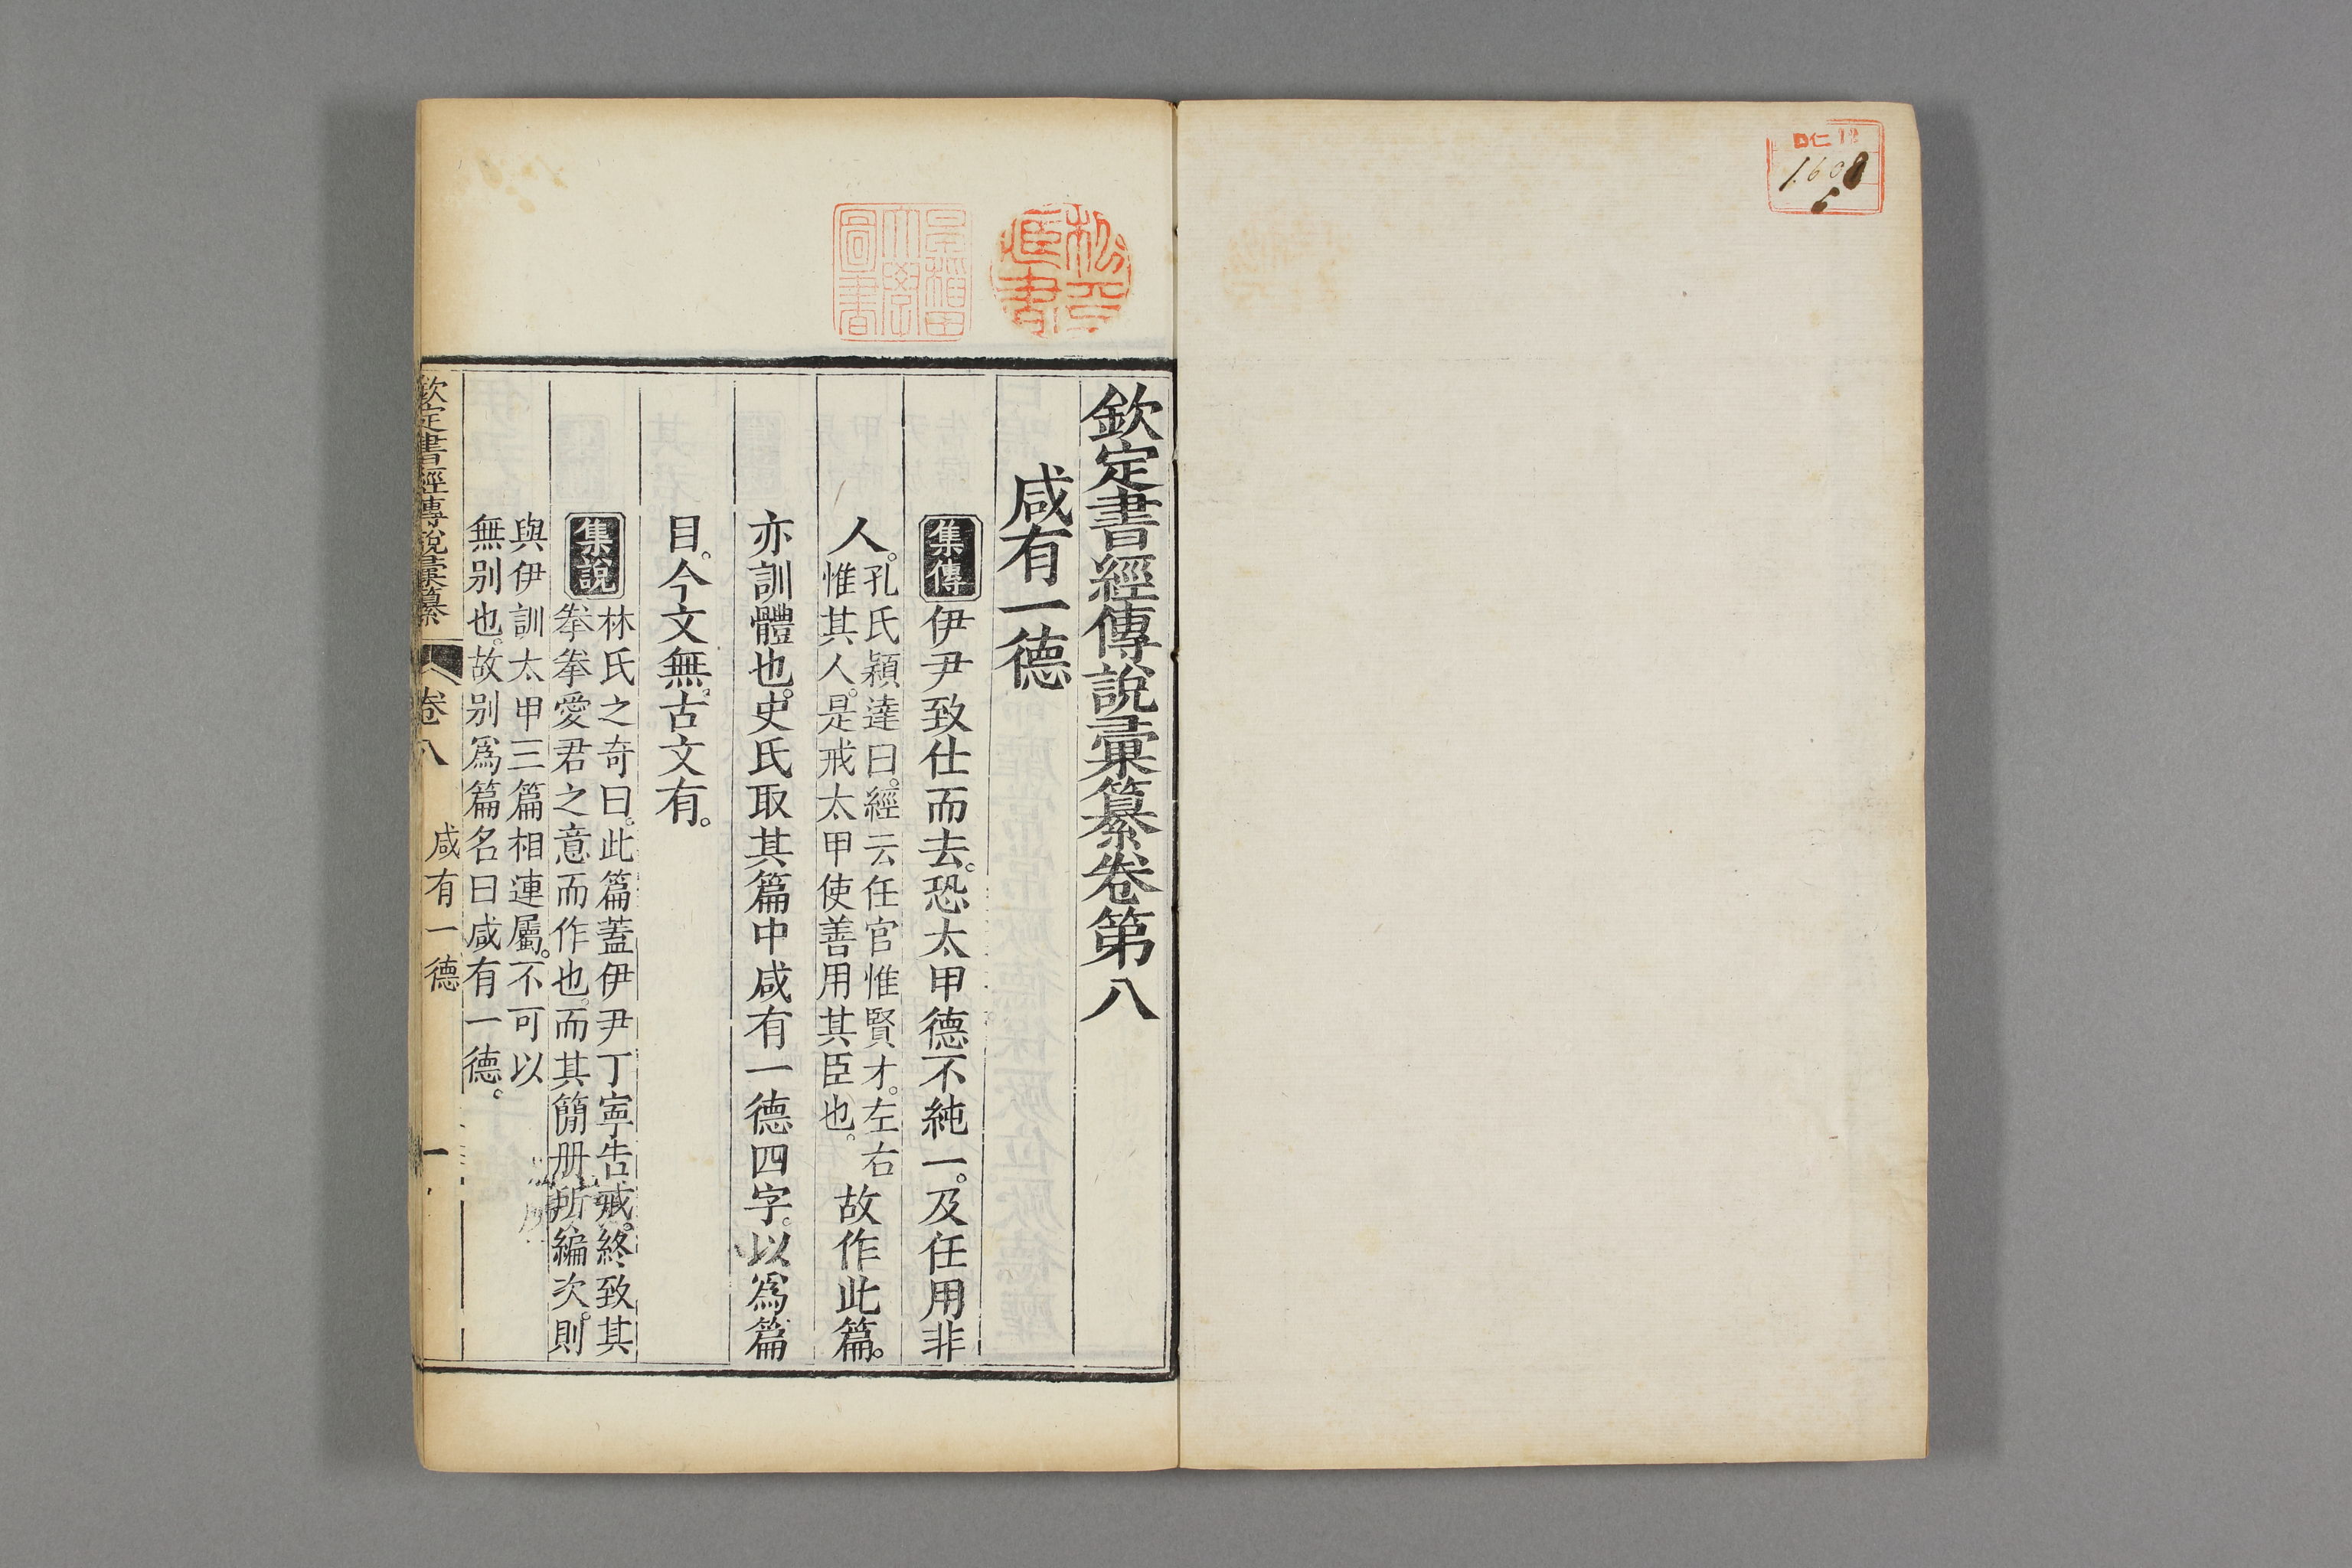 欽定書經傳說彙纂卷第八
咸有一德
集傳 伊尹致仕而去。恐太甲德不純一。及任用非
人。孔氏穎達曰。經云任官惟賢才。左右
惟其人。是戒太甲使善用其臣也。故作此篇。
亦訓體也。史氏取其篇中咸有一德四字。以爲篇
目。今文無。古文有。
集說 林氏之奇曰。此篇蓋伊尹丁寧告戒。終致其
拳拳愛君之意而作也。而其簡册所編次。則
與伊訓太甲三篇相連屬。不可以
無别也。故别爲篇名曰咸有一德。
欽定書經傳說彙纂 卷八 咸有一德 一
松平藏書
早稻田大學圖書
ロ仁 12
1608
6